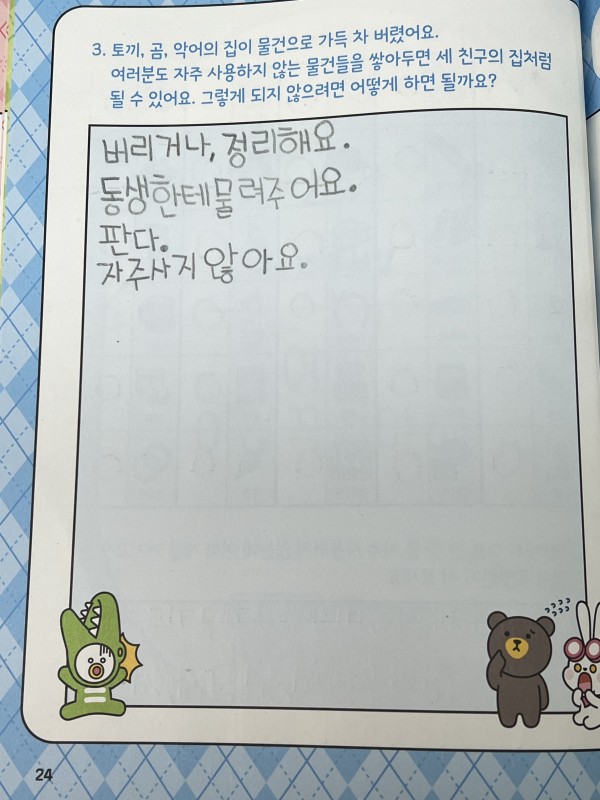 3. 토끼, 곰, 악어의 집이 물건으로 가득 차 버렸어요.
여러분도 자주 사용하지 않는 물건들을 쌓아두면 세 친구의 집처럼
될 수 있어요. 그렇게 되지 않으려면 어떻게 하면 될까요?
버리거나, 정리해요.
동생한테물려주어요.
판다.
자주사지않아요.
24